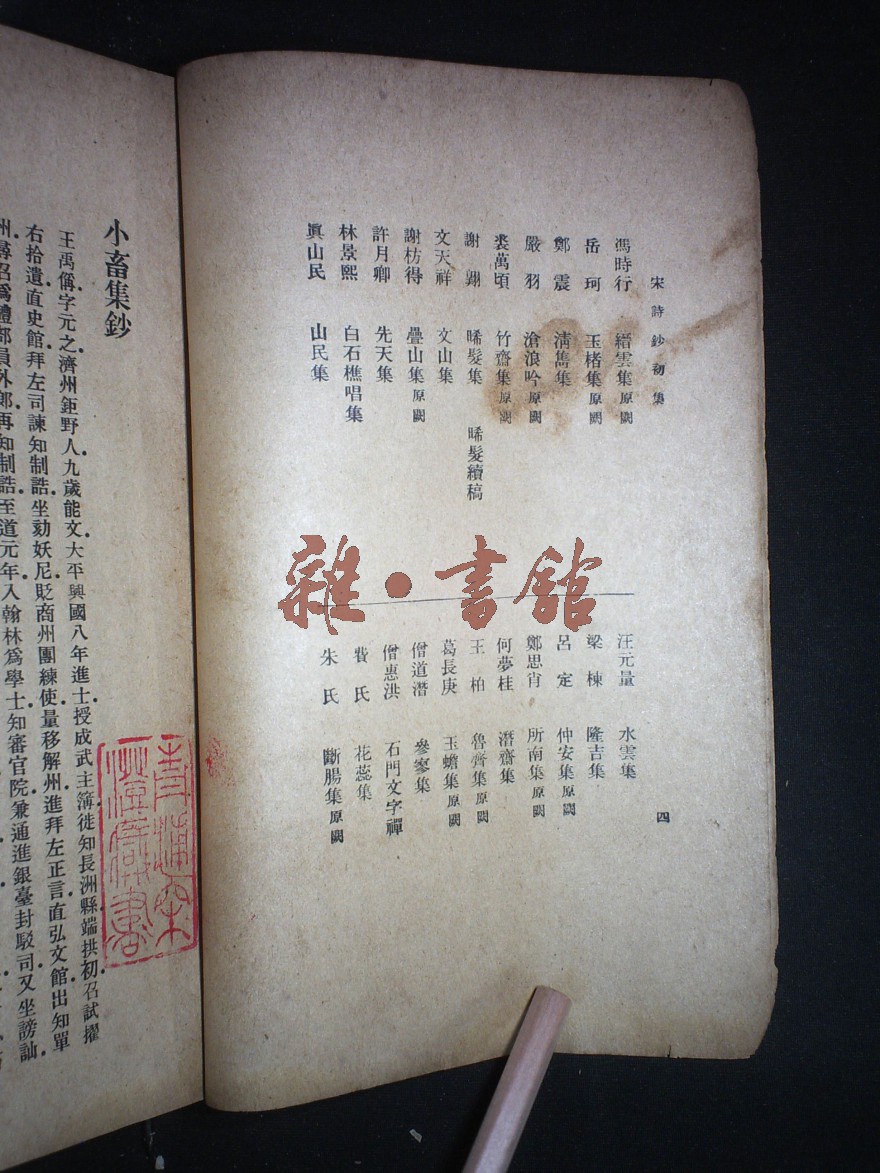 宋詩鈔初集
馮時行 縉雲集原闕
岳珂 玉楮集原闕
鄭震 清雋集
嚴羽 滄浪吟原闕
裘萬頃 竹齋集原闕
謝翱 晞髮集 晞髮續稿
文天祥 文山集
謝枋得 疊山集原闕
許月卿 先天集
林景熙 白石樵唱集
眞山民 山民集
汪元量 水雲集
梁棟 隆吉集
呂定 仲安集原闕
鄭思肖 所南集原闕
何夢桂 潛齋集
王柏 魯齊集原闕
葛長庚 玉蟾集原闕
僧道潛 參寥集
僧惠洪 石門文字禪
費氏 花蕊集
朱氏 斷腸集原闕
四
雜·書館
小畜集鈔
王禹偁字元之濟州鉅野人九歲能文大平興國八年進士授成武主簿徙知長洲縣端拱初召試擢
右拾遺直史館拜左司諫知制誥坐劾妖尼貶商州團練使量移解州進拜左正言直弘文館出知單
州尋召爲禮部員外郎再知制誥至道元年入翰林爲學士知審官院兼通進銀臺封駁司又坐謗訕